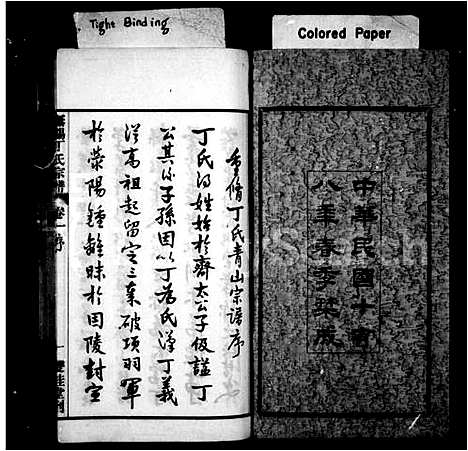 Tight Binding
Colored Paper
中華民國十有
八年春季葺成
重修丁氏青山宗譜序
丁氏得姓始於齊太公子伋諡丁
公其後子孫因以丁為氏漢丁義
從高祖起留定三秦破項羽軍
於滎陽鍾離昧於固陵封宣
丁氏宗譜 卷一 序
一 雙桂堂